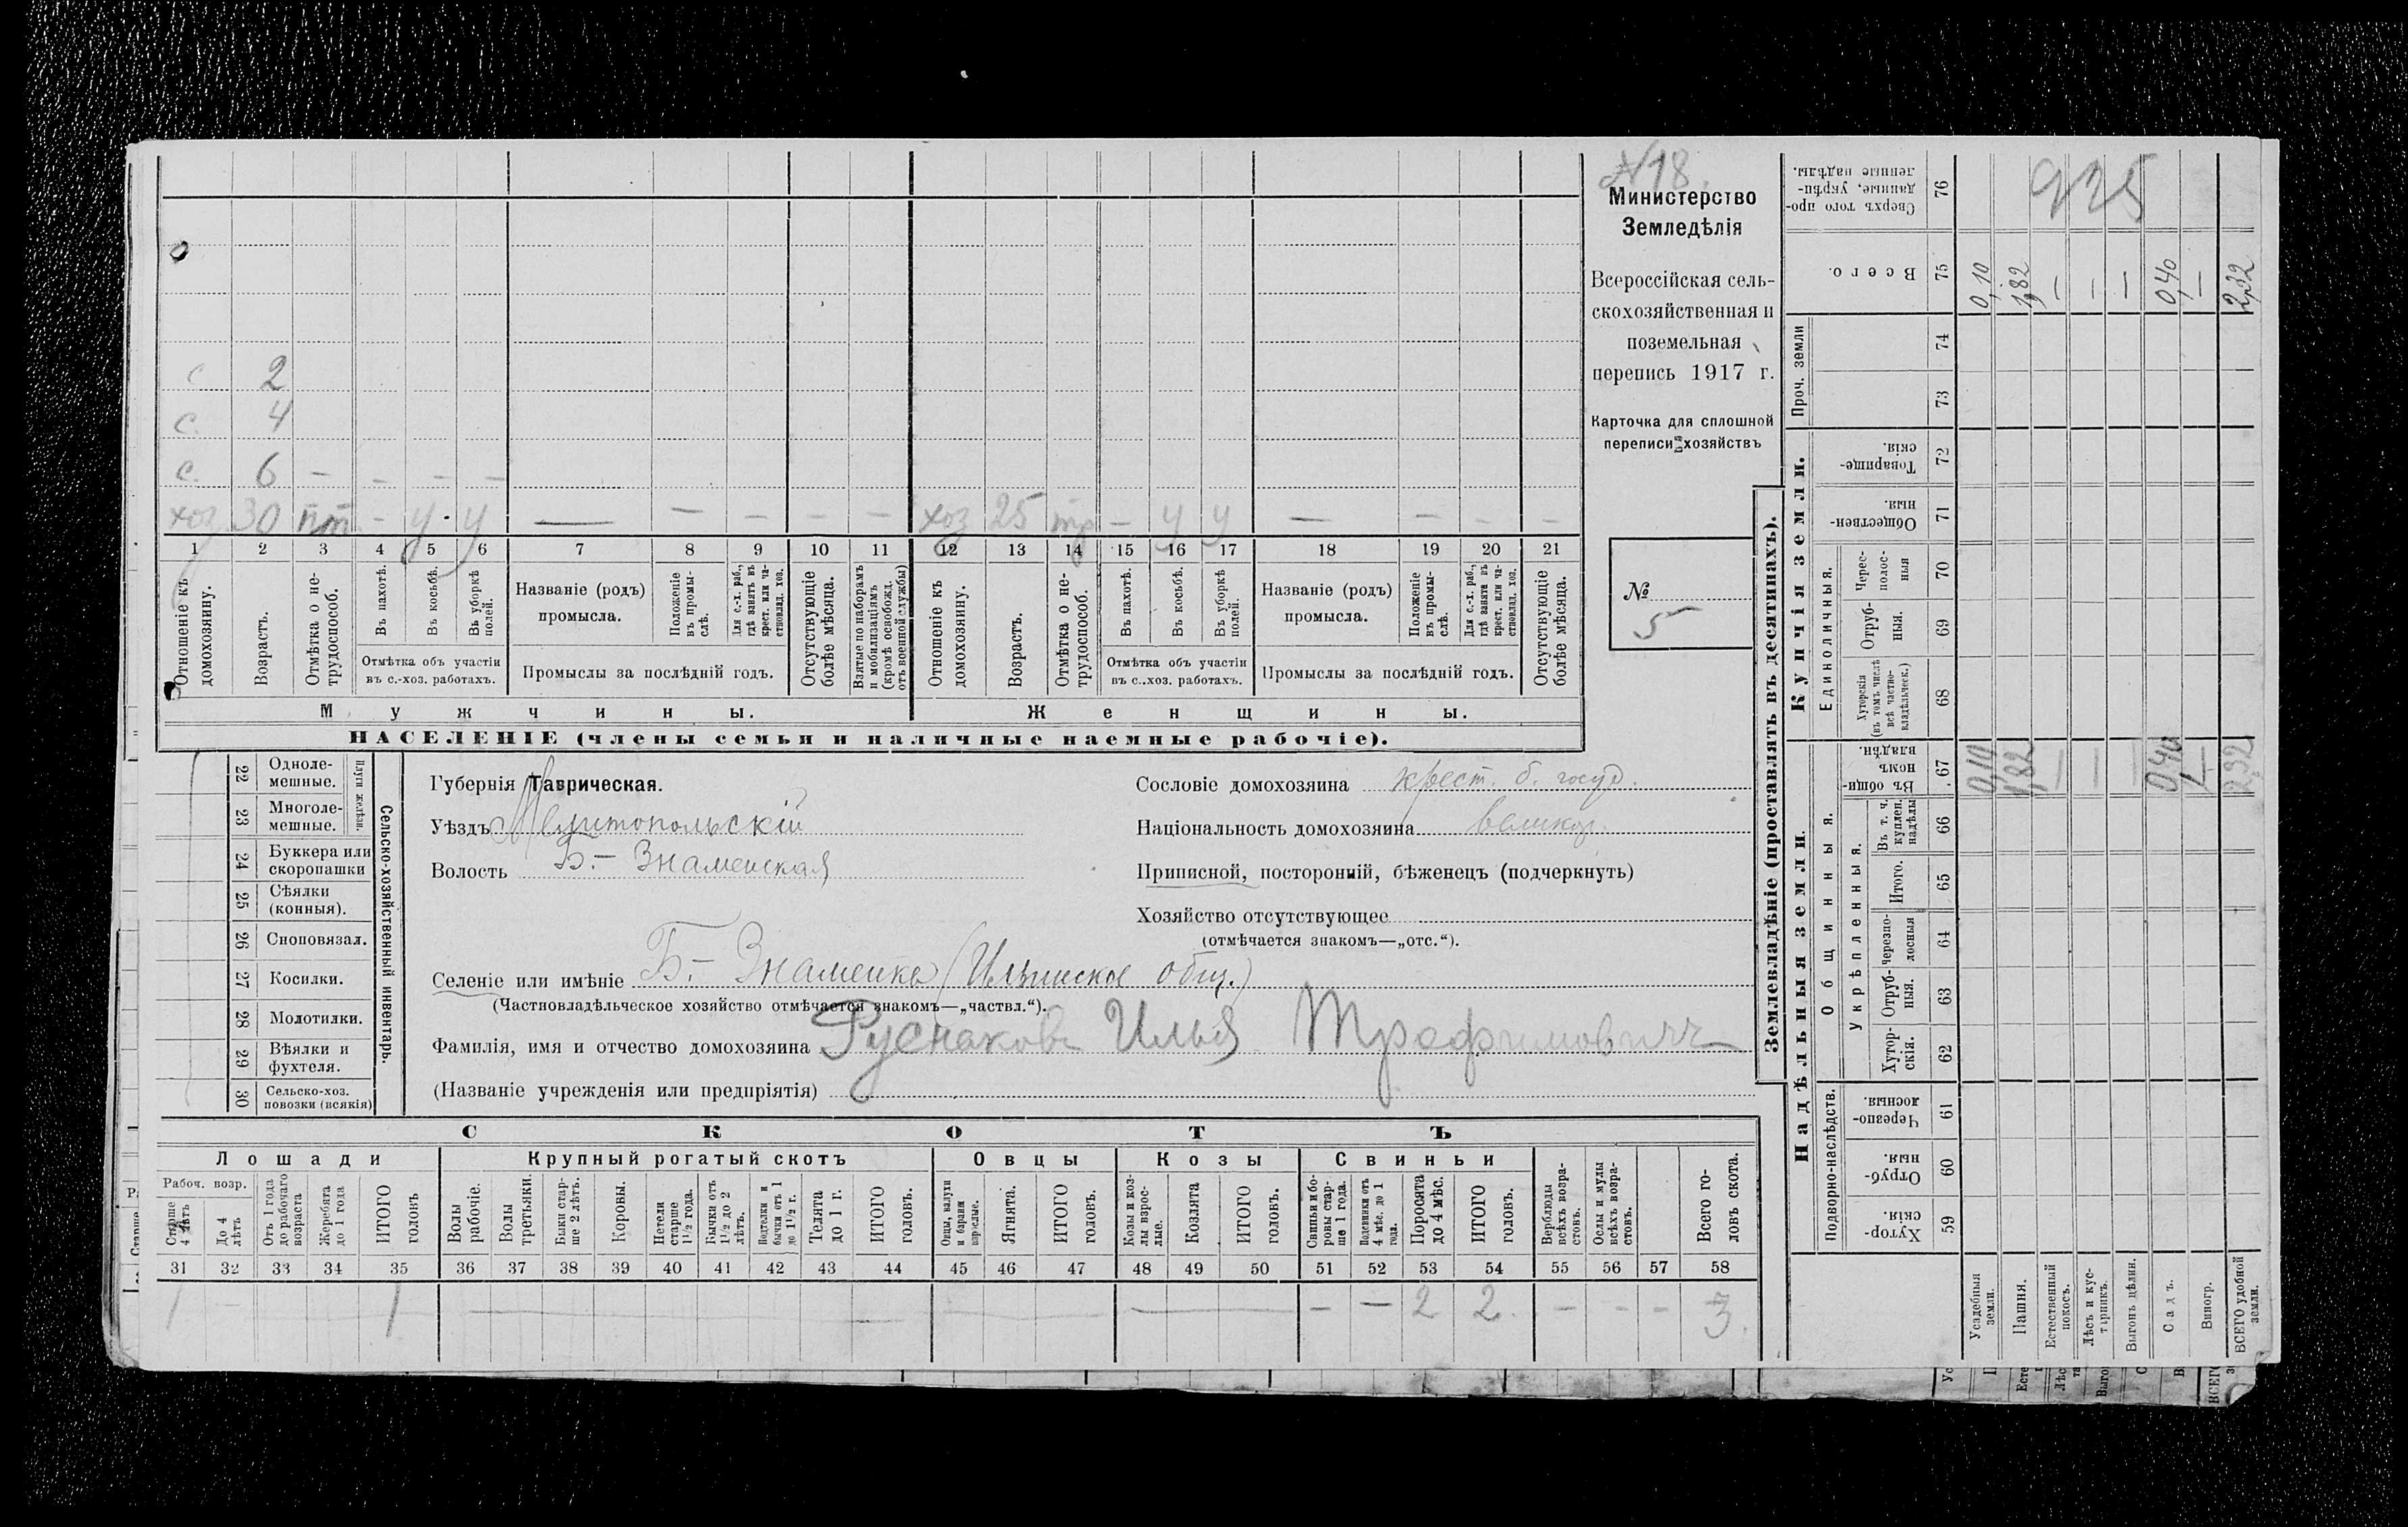 N 18.
Министерство
Земледѣлія
Всероссійская сель-
скохозяйственная и
поземельная
перепись 1917 г.
Карточка для сплошной
переписи хозяйствъ
№
5
с 2
с. 4
с. 6 — — — —
хоз 30 пт. — у у — — — — — хоз 25 тр — у у — — — —
1 2 3 4 5 6 7 8 9 10 11 12 13 14 15 16 17 18 19 20 21
Отношеніе къ домохозяину.
Возрастъ.
Отмѣтка о не-трудоспособ.
Въ пахотѣ.
Въ косьбѣ.
Въ уборкѣ полей.
Отмѣтка объ участіи
въ с.-хоз. работахъ.
Названіе (родъ)
промысла.
Положеніе въ промы-слѣ.
Для с.-х. раб., гдѣ занятъ въ крест. или ча-стновлад. хоз.
Промыслы за послѣдній годъ.
Отсутствующіе болѣе мѣсяца.
Взятые по наборамъ и мобилизаціямъ (кромѣ освобожд. отъ военной службы)
Отношеніе къ домохозяину.
Возрастъ.
Отмѣтка о не-трудоспособ.
Въ пахотѣ.
Въ косьбѣ.
Въ уборкѣ полей.
Отмѣтка объ участіи
въ с..хоз. работахъ.
Названіе (родъ)
промысла.
Положеніе въ промы-слѣ.
Для с.-х. раб., гдѣ занята въ крест. или ча-стновлад. хоз.
Промыслы за послѣдній годъ.
Отсутствующіе болѣе мѣсяца.
Мужчины.
Женщины.
НАСЕЛЕНІЕ (члены семьи и наличные наемные рабочіе).
22 Одноле-мешные.
23 Многоле-мешные.
Плуги желѣзн.
24 Буккера или скоропашки
25 Сѣялки (конныя).
26 Сноповязал.
27 Косилки.
28 Молотилки.
29 Вѣялки и фухтеля.
30 Сельско-хоз. повозки (всякія)
Сельско-хозяйственный инвентарь.
Губернія Таврическая.
Уѣздъ Мелитопольскій
Волость Б.- Знаменская
Сословіе домохозяина крест. б. госуд.
Національность домохозяина великор.
Приписной, посторонній, бѣженецъ (подчеркнуть)
Хозяйство отсутствующее
(отмѣчается знакомъ—„отс.“).
Селеніе или имѣніе Б.- Знаменка (Ильинское общ.)
(Частновладѣльческое хозяйство отмѣчается знакомъ—„частвл.“).
Фамилія, имя и отчество домохозяина Руснаковъ Илья Трофимовичъ
(Названіе учрежденія или предпріятія)
СКОТЪ
Лошади
Крупный рогатый скотъ
Овцы
Козы
Свиньи
Рабоч. возр.
Старше 4 лѣтъ
До 4 лѣтъ
Отъ 1 года до рабочаго возраста
Жеребята до 1 года
ИТОГО головъ
Волы рабочіе.
Волы третьяки.
Быки стар-ше 2 лѣтъ.
Коровы.
Нетели старше 1½ года.
Бычки отъ 1½ до 2 лѣтъ.
Подтелки и бычки отъ 1 до 1½ г.
Телята до 1 г.
ИТОГО головъ.
Овцы, валухи и бараны взрослые.
Ягнята.
ИТОГО головъ.
Козы и коз-лы взрос-лые.
Козлята
ИТОГО головъ.
Свиньи и бо-ровы стар-ше 1 года.
Подсвинки отъ 4 мѣс. до 1 года.
Поросята до 4 мѣс.
ИТОГО головъ.
Верблюды всѣхъ возра-стовъ.
Ослы и мулы всѣхъ возра-стовъ.
Всего го-ловъ скота.
31 32 33 34 35 36 37 38 39 40 41 42 43 44 45 46 47 48 49 50 51 52 53 54 55 56 57 58
1 — 1 — — — — — 2 2. — — — 3.
Землевладѣніе (проставлять въ десятинахъ).
Надѣльныя земли
Купчія земли.
Проч. земли
Подворно-наслѣдств.
Общинныя.
Укрѣпленныя.
Единоличныя.
Хутор-скія. 59
Отруб-ныя. 60
Черезпо-лосныя. 61
Хутор-скія. 62
Отруб-ныя. 63
Черезпо-лосныя 64
Итого. 65
Въ т. ч. куплен. надѣлы 66
Въ общин-номъ владѣн. 67
Хуторскія (въ томъ числѣ всѣ частно-владѣльческ.) 68
Отруб-ныя. 69
Черес-полос-ныя 70
Обществен-ныя. 71
Товарище-скія. 72
73
74
Всего. 75
Сверхъ того про-данные, укрѣп-ленные надѣлы. 76
925
Усадебныя земли. 0,10 0,10
Пашня. 1,82 1,82
Естественный покосъ. — —
Лѣсъ и кус-тарникъ. — —
Выгонъ цѣлин. — —
Садъ. 0,40 0,40
Виногр. — —
ВСЕГО удобной земли. 2,32 2,32